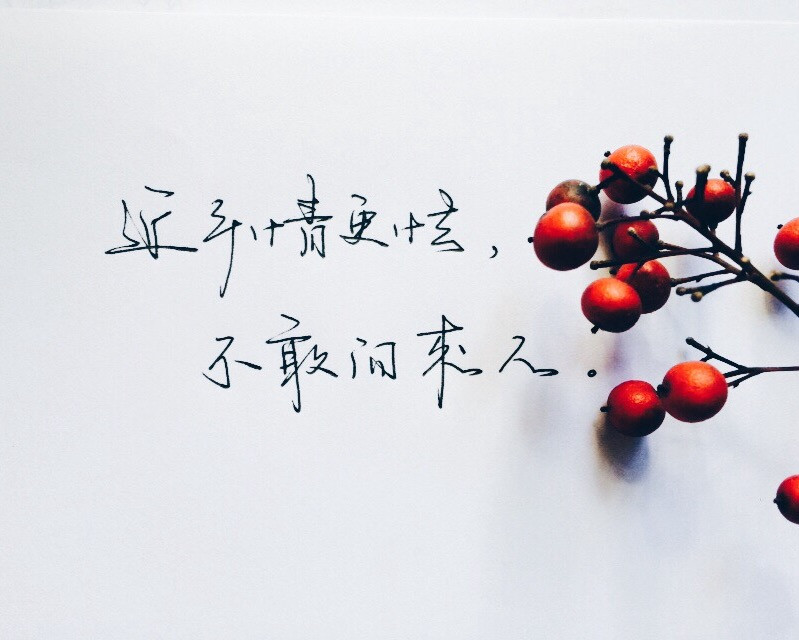 近乡情更怯，
不敢问来人。